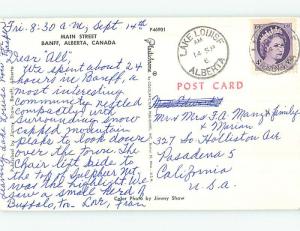 Fri. 8:30 a.m. Sept 14th
MAIN STREET
BANFF, ALBERTA, CANADA
Dear All,
We spent about 24
hours in Banff, a
most interesting
community nestled
compactly with
surrounding snow
capped mountain
peaks to look down
over the town. The
Chair lift ride to
the top of Sulphur Mt.
was the highlight. We
saw a small herd of
Buffalo, too. Lov, Fran
Color Photo by Jimmy Shaw
P46901
LAKE LOUISE
AM
14 SP
ALBERTA
POST CARD
Mr and Mrs J. A. Manz & family
and Marian
327 So Holliston Air
Pasadena 5
California
U.S.A.